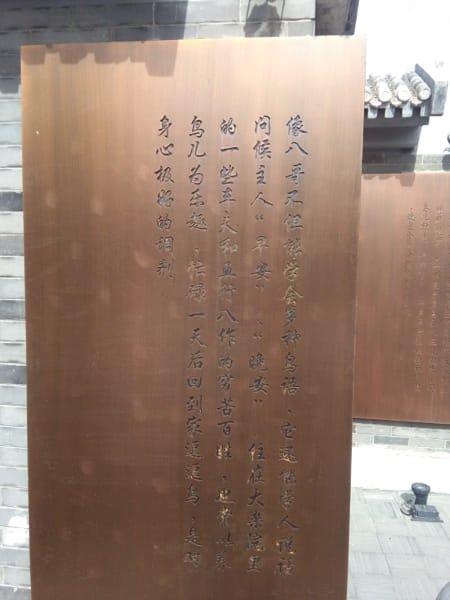 像八哥不但能学会多种鸟语，它还能学人说话
问候主人“早安”、“晚安” 住在大杂院里
的一些车夫和五行八作的穷苦百姓，也常以养
鸟儿为乐趣，忙碌一天后回到家逗逗鸟，是对
身心极好的调剂